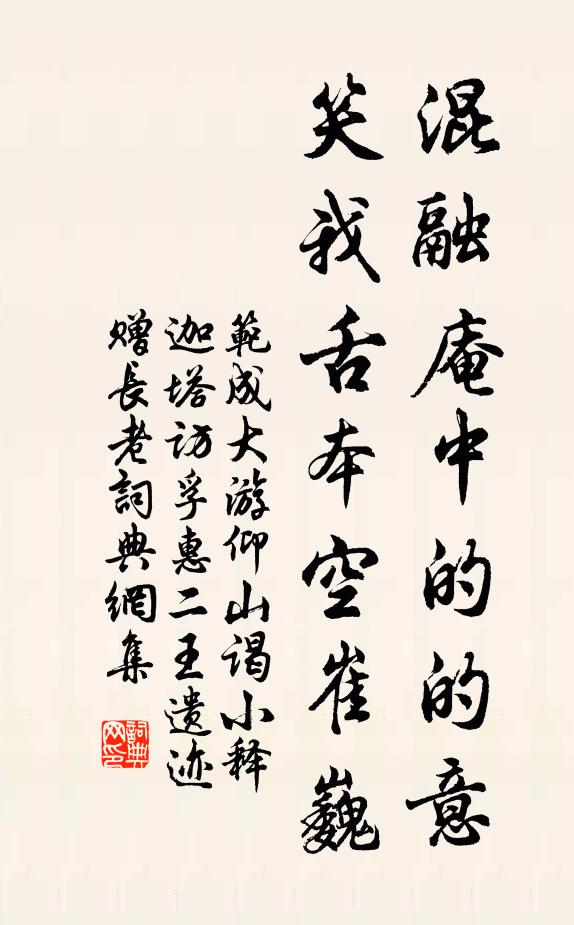 混融庵中的的意
笑我舌本空崔巍
範成大游仰山谒小释
迦塔访孚惠二王遗迹
赠長老詞典網集
詞典网印